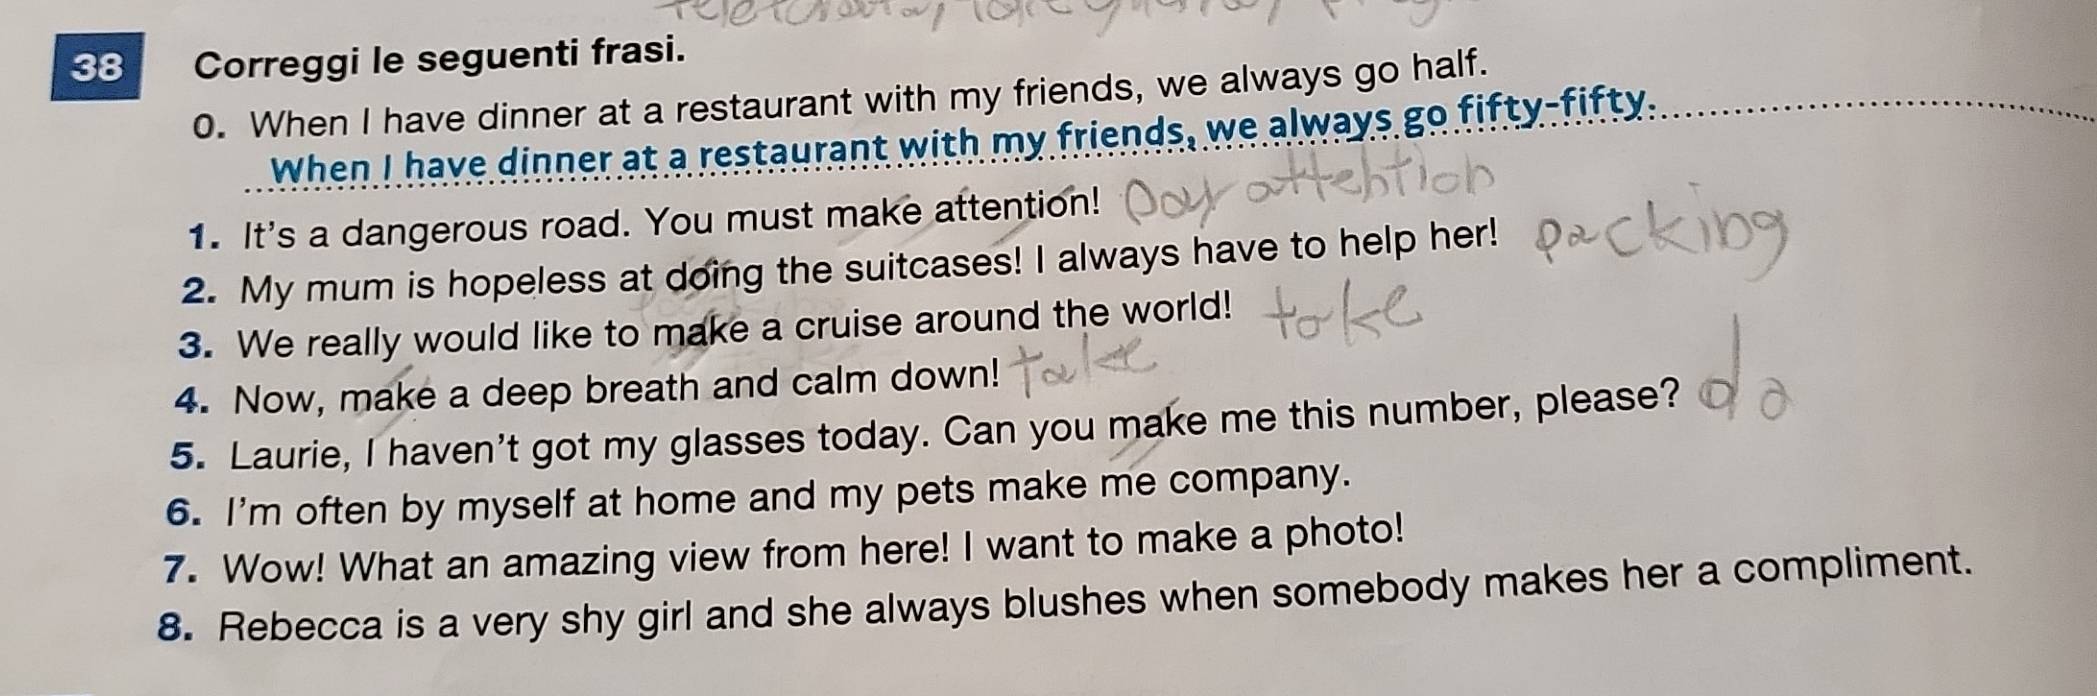 38 Correggi le seguenti frasi.
0. When I have dinner at a restaurant with my friends, we always go half.
When I have dinner at a restaurant with my friends, we always go fifty-fifty.
1. It's a dangerous road. You must make attention! pay attention
2. My mum is hopeless at doing the suitcases! I always have to help her! packing
3. We really would like to make a cruise around the world! take
4. Now, make a deep breath and calm down! Take
5. Laurie, I haven't got my glasses today. Can you make me this number, please? do
6. I'm often by myself at home and my pets make me company.
7. Wow! What an amazing view from here! I want to make a photo!
8. Rebecca is a very shy girl and she always blushes when somebody makes her a compliment.